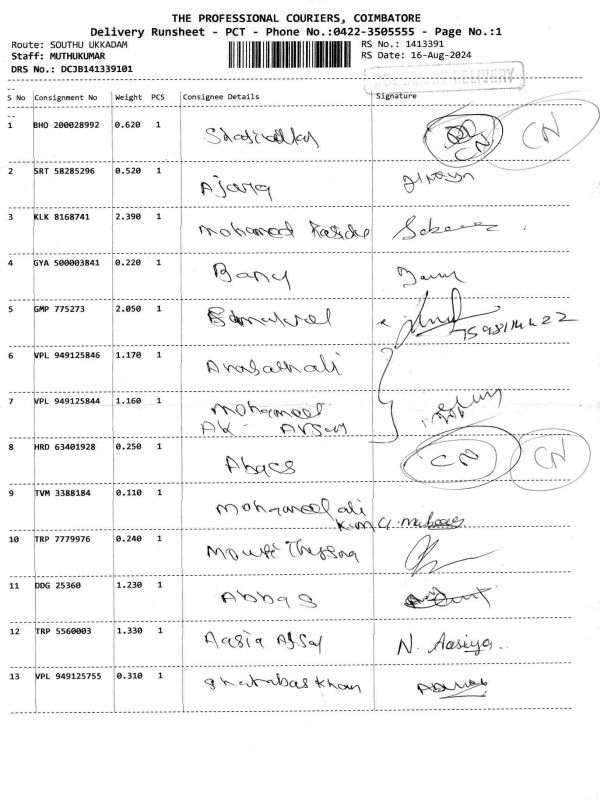 THE PROFESSIONAL COURIERS, COIMBATORE
Delivery Runsheet - PCT - Phone No.:0422-3505555 - Page No.:1
Route: SOUTHU UKKADAM RS No.: 1413391
Staff: MUTHUKUMAR RS Date: 16-Aug-2024
DRS No.: DCJB141339101
DELIVERY
S No Consignment No Weight PCS Consignee Details Signature
1 BHO 200028992 0.620 1 CN CN
2 SRT 58285296 0.520 1 Ajara
3 KLK 8168741 2.390 1 Mohamed
4 GYA 500003841 0.220 1 Bany
5 GMP 775273 2.050 1
6 VPL 949125846 1.170 1 Arabathali
7 VPL 949125844 1.160 1 Mohameed
AK -
8 HRD 63401928 0.250 1 Abacs CN CN
9 TVM 3388184 0.110 1 Mohameed ali
10 TRP 7779976 0.240 1
11 DDG 25360 1.230 1 Abbas
12 TRP 5560003 1.330 1 Aasia Afsal N. Aasiya.
13 VPL 949125755 0.310 1 Shahabas Khan